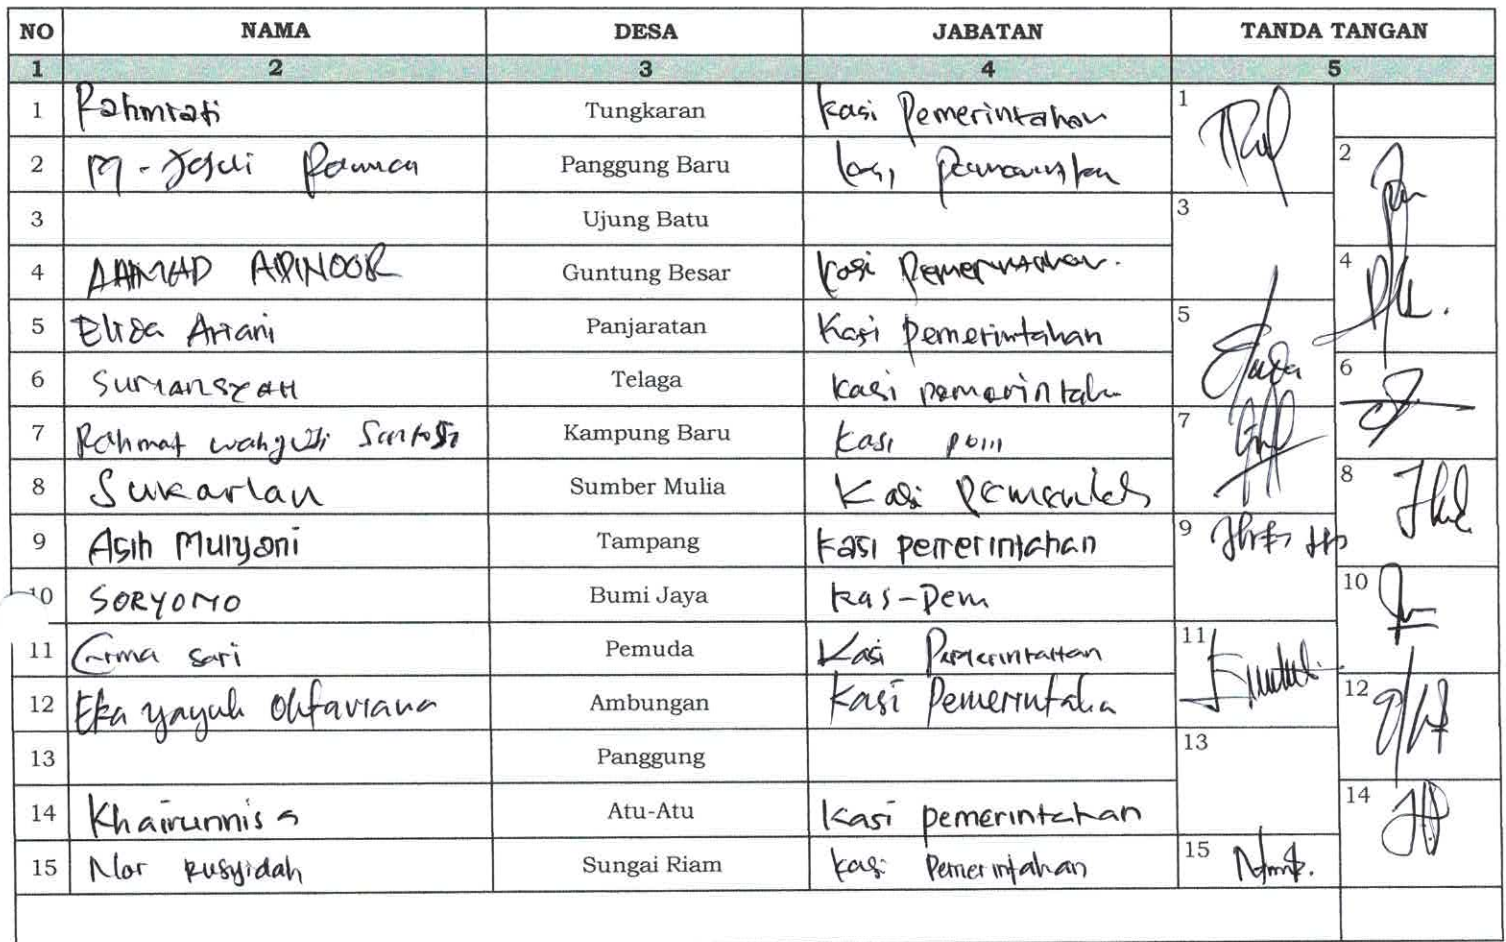 NO NAMA DESA JABATAN TANDA TANGAN
1 2 3 4 5
1 Rahmiati Tungkaran Kasi Pemerintahan 1
2 M - Panggung Baru 2
3 Ujung Batu 3
4 AHMAD ARINOOR Guntung Besar Kasi Pemerintahan. 4
5 Elida Ariani Panjaratan Kasi Pemerintahan 5
6 SURIANSYAH Telaga Kasi pemerintah 6
7 Rahmat Wahyudi Santoso Kampung Baru Kasi pem 7
8 Sukarlan Sumber Mulia Kasi 8
9 Asih Mulyani Tampang Kasi pemerintahan 9
10 SORYONO Bumi Jaya Kas-Pem 10
11 Erma sari Pemuda Kasi Pemerintahan 11
12 Eka yayuk Oktaviana Ambungan Kasi Pemerintaha 12
13 Panggung 13
14 Khairunnisa Atu-Atu Kasi pemerintahan 14
15 Nor Rusyidah Sungai Riam Kasi Pemerintahan 15